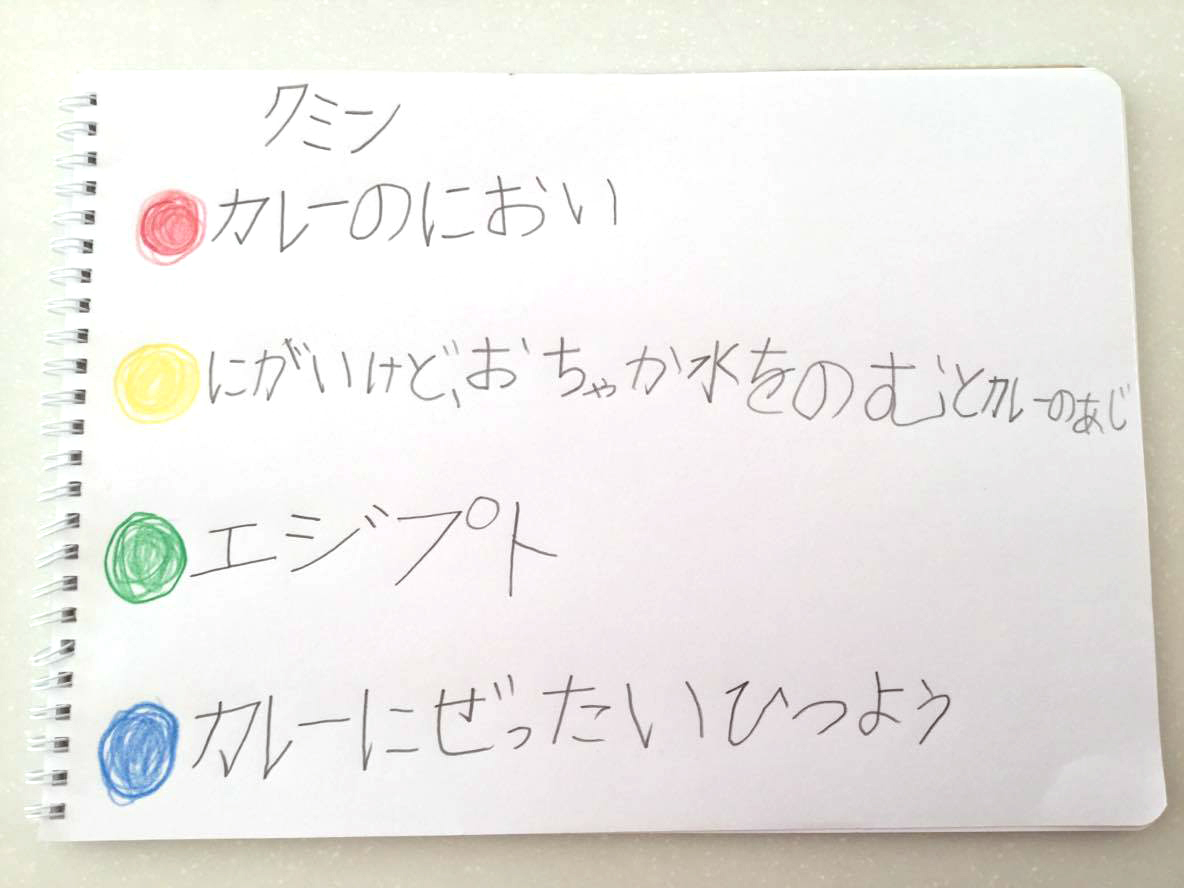 クミン
カレーのにおい
にがいけど、おちゃか水をのむとカレーのあじ
エジプト
カレーにぜったいひつよう